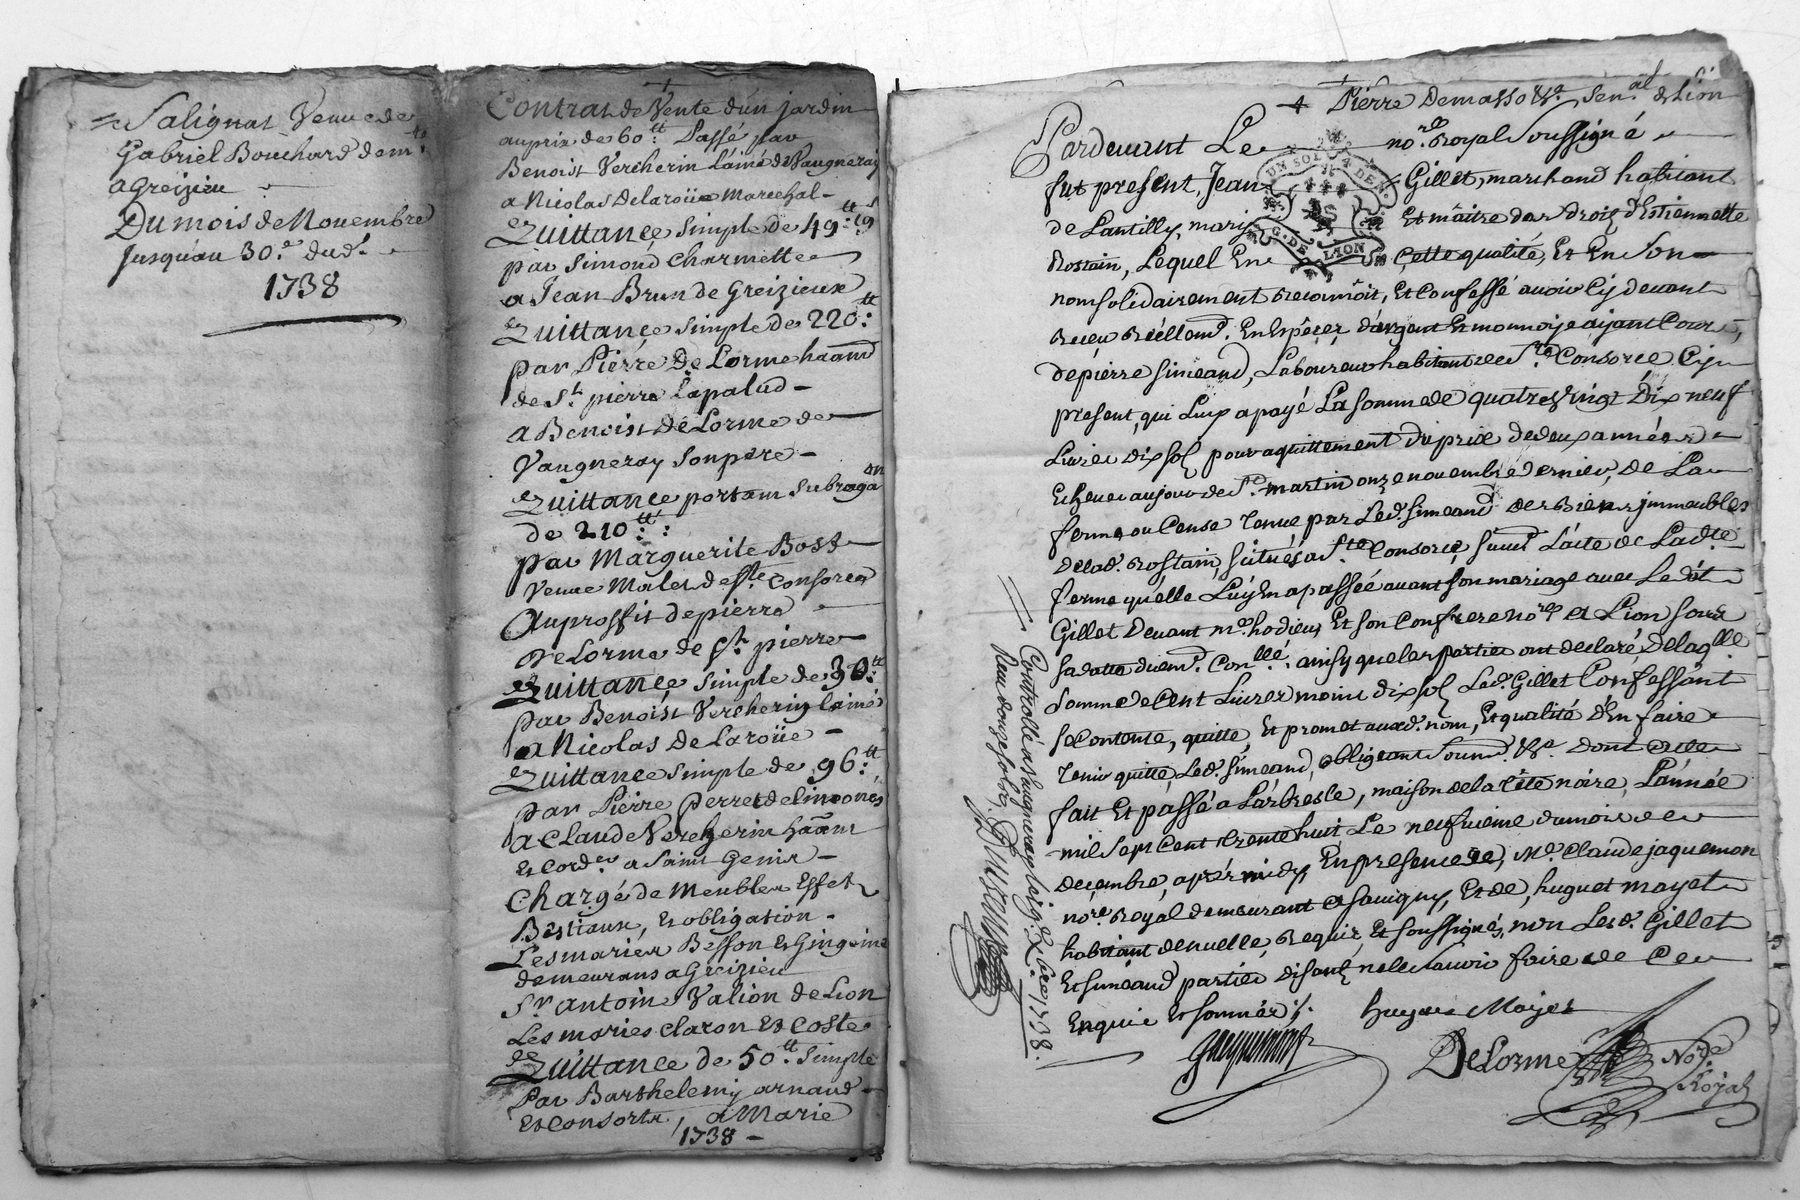 Salignat Veuve de
Gabriel Bouchard dem.te
a Greizieu
Du mois de Novembre
Jusqu'au 30.e dud.t
1738
Contrat de Vente d'un jardin
au prix de 60.tt Passé par
Benoist Vercherin L'ainé de Vaugneray
a Nicolas Delaroüe Marechal
Quittance simple de 49.tt 19.s
par Simond Charmette
a Jean Brun de Greizieux
Quittance simple de 220.tt
par Pierre De Lorme
de S.t pierre Lapalud
a Benoist De Lorme de
Vaugneray son pere
Quittance portant subroga.on
de 210.tt
par Marguerite Bost
Veuve Molet de S.te Consorce
Au proffit de pierre
De Lorme de S.t pierre
Quittance simple de 30.tt
par Benoist Vercherin lainé
a Nicolas De Laroüe
Quittance simple de 96.tt
par Pierre Perret de limonés
a Claude Vercherin
Et Cord.er a Saint Genis
Chargé de Meubles Effets
Bestiaux, Et obligation
Les mariés Besson Et Gingeine
demeurans a Greizieu
S.r antoine Valion de Lion
Les mariés Claron Et Coste
Quittance de 50.tt simple
Par Barthelemy arnaud
Et Consorts, a Marie
1738
Pierre Demasso &.a Sen.al de Lion
Pardevant Le no.re Royal soussigné
UN SOL 4 DEN
G. DE LION
fut present, Jean Gillet, marchand habitant
de Lantilly, mary Et maître des droits d'Estiennette
Rostain, Lequel En cette qualité, Et En son
nom solidairement reconnoit, Et Confesse avoir Cy devant
receu reellem.t En Espéces d'argent Et monnoye ayant Cours,
de pierre Simeand, Laboureur habitant de S.te Consorce Cy
present, qui Luy a payé La somme de quatre vingt Dix neuf
Livres dix sols pour aquittement du prix de deux années
Echeue aujour de S.t martin onze novembre dernier, de La
ferme ou Cense tenue par Led. Simeand des Biens immeubles
de lad. Rostain, scitués a S.te Consorce, suiv.t L'acte de Lad.te
ferme qu'elle Luy En a passée avant son mariage avec Ledit
Gillet Devant m.e hodieu Et son Confrere no.res a Lion sous
sa datte duem.t Con.llé, ainsy que les parties ont declaré, De laq.lle
somme de Cent Livres moins dix sols Led. Gillet Confessant
se Contente, quitte, Et promet auxd. nom, Et qualité d'En faire
tenir quitte, Led. Simeand, obligeant Soum.t &.a Dont acte
fait Et passé a L'arbresle, maison de la tête noire, L'année
mil sept Cent trente huit Le neufvieme du mois de
decembre, aprés midy, En presence de, M.e Claude jaquemon
no.re Royal demeurant a Savigny, Et de, huguet mayet
habitant de nuelle, requis, Et soussignés, non Lesd. Gillet
Et Simeand parties disant ne le sçavoir faire de Ce
Enquis Et sommés
Controllé a Vaugneray Le 9. Xbre 1738.
Reçu douze sols
Jaquemont
huguet Mayet
DeLorme
No.re
Royal